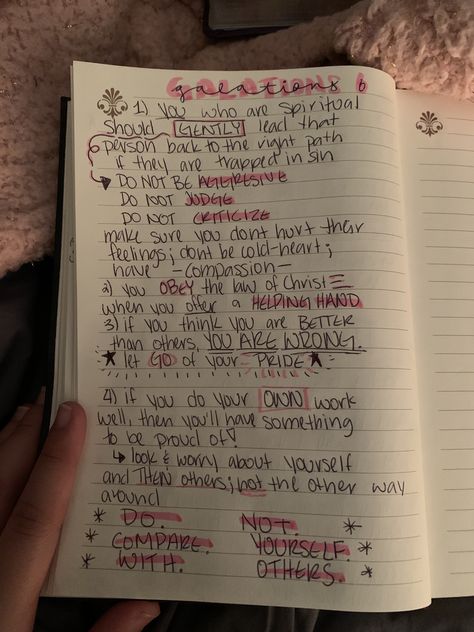 GALATIONS 6
galations
1) you who are spiritual
should GENTLY lead that
person back to the right path
if they are trapped in sin
DO NOT BE AGGRESIVE
DO NOT JUDGE
DO NOT CRITICIZE
make sure you dont hurt their
feelings; dont be cold-heart;
have -compassion-
2) you OBEY the law of Christ
when you offer a HELPING HAND
3) if you think you are BETTER
than others, YOU ARE WRONG.
★ let GO of your PRIDE ★
4) if you do your OWN work
well, then you'll have something
to be proud of!
↳ look & worry about yourself
and THEN others; not the other way
around
* DO. NOT. *
* COMPARE. YOURSELF. *
* WITH. OTHERS. *